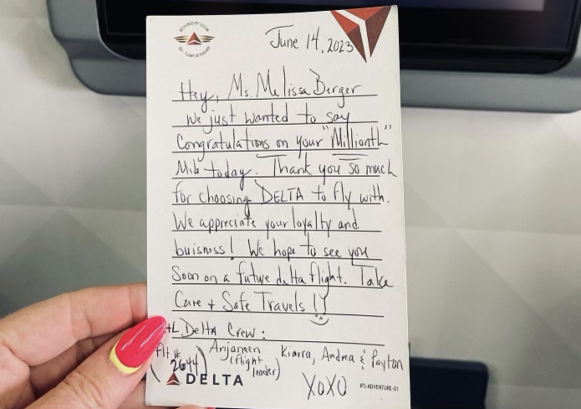 June 14, 2023
Hey, Ms. Melissa Berger
We just wanted to say
Congratulations on your "Millionth"
Mile today. Thank you so much
for choosing DELTA to fly with.
We appreciate your loyalty and
buisness! We hope to see you
Soon on a future delta flight. Take
Care + Safe Travels!
ATL Delta Crew:
Flt # 2644
Anjameen (flight leader)
Kiarra, Andrea & Payton
DELTA
XOXO